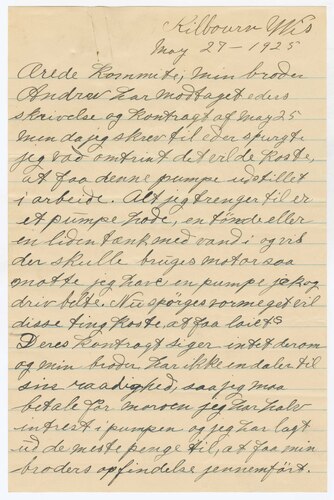 Kilbourn Wis
May 27 - 1925
Ærede Kommite, min broder
Andrew har modtaget eders
skrivelse og kontragt af May 25
men da jeg skrev til eder spurgte
jeg vad omtrint det vilde koste,
at faa denne pumpe udstillet
i arbeide. Alt jeg trenger til er
et pumpe hode, en tønde eller
en liden tænk med vand i og vis
der skulle bruges motor saa
maatte jeg have en pumpe jek og
driv belte. Nu spørges vor meget vil
disse ting koste, at faa leiet
Deres kontragt siger intet derom
og min broder har ikke en daler til
sin raadighed, saa jeg maa
betale for moroen jeg har halv
intrest i pumpen og jeg har lagt
ud de meste penge til, at faa min
broders opfindelse jennemført.